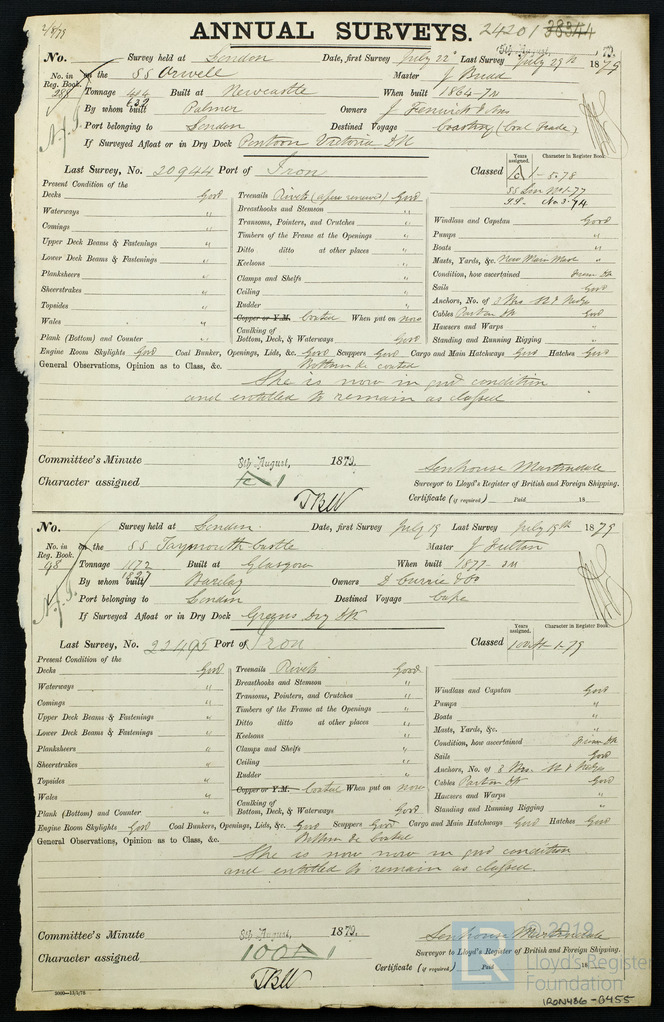 2/8/79
ANNUAL SURVEYS. 24201 38344
No. Survey held at London Date, first Survey July 22d Last Survey July 29th 1879
15th August, 79.
No. in Reg. Book. on the SS Orwell Master J Bread
281 Tonnage Built at Newcastle When built 1864-72
By whom built Palmer Owners J Fenwick & Sons
Port belonging to London Destined Voyage Coasting (Coal Trade)
If Surveyed Afloat or in Dry Dock Pontoon Victoria Dk
Last Survey, No. 20944 Port of Iron Classed
Years assigned. Character in Register Book.
1- 5.78
SS Lon No1-77
No 3.74
Present Condition of the
Decks Good Treenails Rivets (a few renewed) Good
Waterways " Breasthooks and Stemson " Windlass and Capstan Good
Comings " Transoms, Pointers, and Crutches " Pumps "
Upper Deck Beams & Fastenings " Timbers of the Frame at the Openings " Boats "
Lower Deck Beams & Fastenings " Ditto ditto at other places " Masts, Yards, &c. New Main Mast
Planksheers " Keelsons " Condition, how ascertained From Dk
Sheerstrakes " Clamps and Shelfs " Sails Good
Topsides " Ceiling " Anchors, No. of 3 Brs St & Kedge
Wales " Rudder " Cables Part on Dk Good
Plank (Bottom) and Counter " Copper or Y.M. Coated When put on now Hawsers and Warps "
Caulking of Bottom, Deck, & Waterways Good Standing and Running Rigging "
Engine Room Skylights Good Coal Bunker, Openings, Lids, &c. Good Scuppers Good Cargo and Main Hatchways Good Hatches Good
General Observations, Opinion as to Class, &c. Bottom &c coated
She is now in good condition
and entitled to remain as classed
Committee's Minute 8th August, 1879.
Character assigned 1
Senhouse Martindale
Surveyor to Lloyd's Register of British and Foreign Shipping.
Certificate (if required) Paid 18
No. Survey held at London. Date, first Survey July 19 Last Survey July 19th 1879
No. in Reg. Book. on the SS Taymouth Castle Master J Fulton
98 Tonnage 1172 1827 Built at Glasgow When built 1877
By whom built Barclay Owners D Currie & Co
Port belonging to London Destined Voyage Cape
If Surveyed Afloat or in Dry Dock Greens Dry Dk
Last Survey, No. 22405 Port of Iron Classed 100A 1-79
Years assigned. Character in Register Book.
Present Condition of the
Decks Good Treenails Rivets Good
Waterways " Breasthooks and Stemson " Windlass and Capstan Good
Comings " Transoms, Pointers, and Crutches " Pumps "
Upper Deck Beams & Fastenings " Timbers of the Frame at the Openings " Boats "
Lower Deck Beams & Fastenings " Ditto ditto at other places " Masts, Yards, &c. "
Planksheers " Keelsons " Condition, how ascertained From Dk
Sheerstrakes " Clamps and Shelfs " Sails Good
Topsides " Ceiling " Anchors, No. of 3 Brs St & Kedge
Wales " Rudder " Cables Part on Dk Good
Plank (Bottom) and Counter " Copper or Y.M. Coated When put on now Hawsers and Warps "
Caulking of Bottom, Deck, & Waterways Good Standing and Running Rigging "
Engine Room Skylights Good Coal Bunkers, Openings, Lids, &c. Good Scuppers Good Cargo and Main Hatchways Good Hatches Good
General Observations, Opinion as to Class, &c. Bottom &c Coated
She is now now in good condition
and entitled to remain as classed.
Committee's Minute 8th August, 1879.
Character assigned 100A 1
Senhouse Martindale
Surveyor to Lloyd's Register of British and Foreign Shipping.
Certificate (if required) Paid 18
LR © 2019 Lloyd's Register Foundation
IRON486-0455